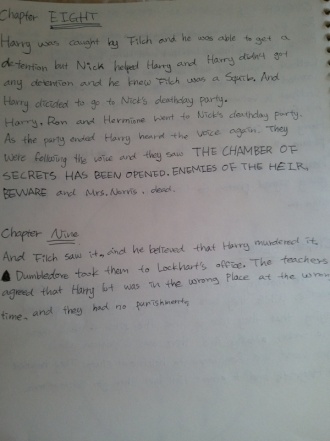 Chapter EIGHT
Harry was caught by Filch and he was able to get a
detention but Nick helped Harry and Harry didn't got
any detention and he knew Filch was a Squib. And
Harry dicided to go to Nick's deathday party.
Harry, Ron and Hermione went to Nick's deathday party.
As the party ended Harry heard the voice again. They
were following the voice and they saw THE CHAMBER OF
SECRETS HAS BEEN OPENED. ENEMIES OF THE HEIR,
BEWARE and Mrs. Norris. dead.
Chapter Nine
And Filch saw it, and he believed that Harry murdered it.
Dumbledore took them to Lockhart's office. The teachers
agreed that Harry lot was in the wrong place at the wrong
time. and they had no punishments